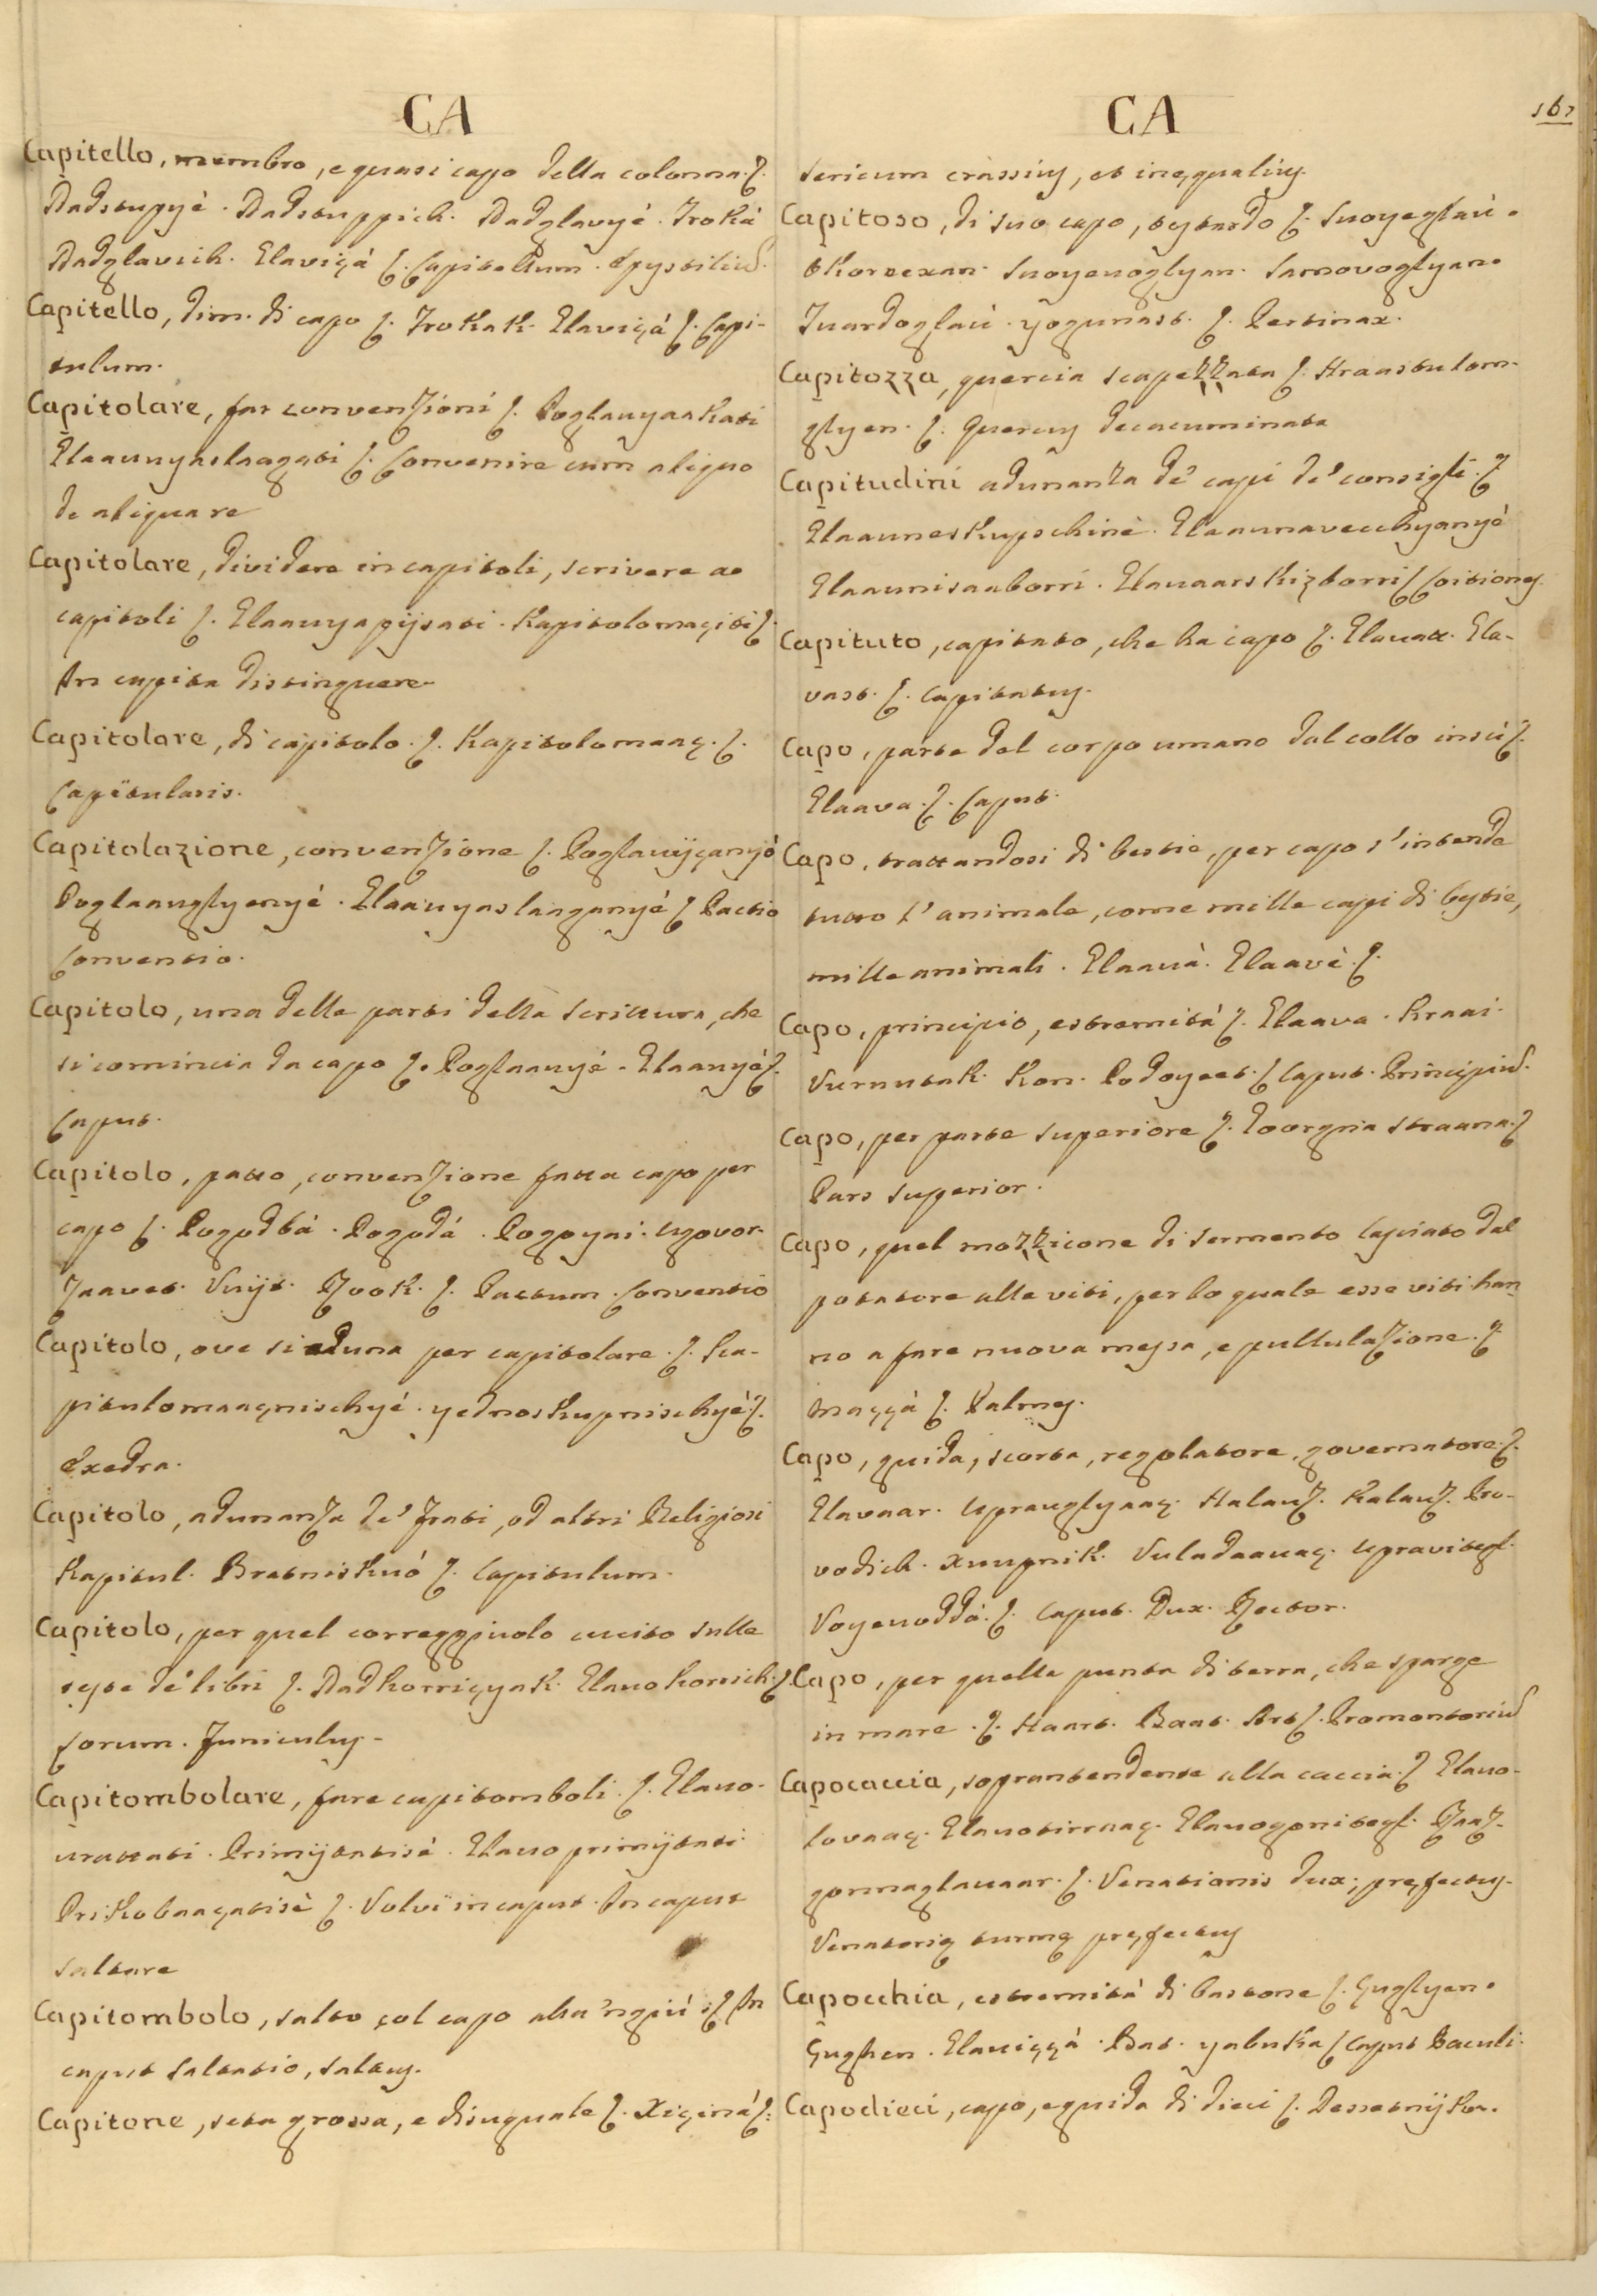 CA
Capitello, membro, e quasi capo della colonna. ſ.
Nadstupyè. Nadstuppich. Nadglavyè. Troká
Nadglavich. Glaviçá ſ. Capitellum. Epystiliũ.
Capitello, dim. di capo ſ. Trokak. Glaviçá ſ. Capi-
tulum.
Capitolare, far convenzioni ſ. Poglauyaakati
Glaauuyaslaagati ſ. Convenire cum aliquo
de aliqua re
Capitolare, dividere in capitoli, scrivere a
capitoli ſ. Glaauyapijsati. Kapitolomaçiti ſ.
In capita distinguere.
Capitolare, di capitolo. ſ. Kapitolomaaç. ſ.
Capitularis.
Capitolazione, convenzione ſ. Poglauijçanyó
Poglaauglyenyé. Glaauyaslaaganyé ſ. Pactio
Conventio.
Capitolo, una delle parti della scrittura, che
si comincia da capo ſ. Poglaauyé. Glaauyé ſ.
Caput.
Capitolo, patto, convenzione fatta capo per
capo ſ. Pogodbá. Pogodá. Pogoyai. Ugovor.
Zaavet. Vuijt. Rook. ſ. Pactum. Conventio
Capitolo, ove si aduna per capitolare. ſ. Ka-
pitulomaaçnischyé. yednoskupnischyè. ſ.
Exedra.
Capitolo, adunanza de' Frati, od altri Religiosi
Kapitul. Bratniskuó ſ. Capitulum.
Capitolo, per quel correggiuolo cucito sulle
teste de' libri ſ. Nadkorriçyak. Glauokorich. ſ.
Lorum. Funiculus.
Capitombolare, fare capitomboli. ſ. Glauo-
urattati. Primijtatisè. Glauoprimijtati.
Prikobaaçatisè ſ. Volvi in caput. In caput
saltare
Capitombolo, salto col capo all'ingiù ſ. In
caput saltatio, saltus.
Capitone, seta grossa, e disuguale ſ. Xiçiná ſ.
CA
167
sericum crassius, et inęqualius.
Capitoso, di suo capo, testardo ſ. Suoyeglaù.
tkorvexan. Suoyeuoglyan. Samovoglyan.
Tuardoglaù. yogunast. ſ. Pertinax.
Capitozza, quercia scapezzata ſ. Hraastulom-
glyen. ſ. Quercus decacuminata
Capitudini adunanza de' capi de' consigli. ſ.
Glaauneskupschinè. Glaaunavecchyanyè
Glaaunisaaborri. Glauaarskizborri ſ. Coitiones.
Capituto, capitato, che ha capo ſ. Glauatt. Gla-
vast. ſ. Capitatus.
Capo, parte del corpo umano dal collo insù ſ.
Glaava. ſ. Caput.
Capo, trattandosi di bestie, per capo s'intende
tutto l'animale, come mille capi di bestie,
mille animali. Glaauà. Glaavè. ſ.
Capo, principio, estremità ſ. Glaava. Kraai.
Vurnutak. Kon. Podoyeet. ſ. Caput. Principiũ.
Capo, per parte superiore ſ. Goorgnia straana. ſ.
Pars superior.
Capo, quel mozzicone di sermento lasciato dal
potatore alle viti, per lo quale esse viti han
no a fare nuova messa, e pullulazione. ſ.
maççà ſ. Palmes.
Capo, guida, scorta, regolatore, governatore. ſ.
Glavaar. Uprauglyaaç. Halauz. Kalauz. Pro-
vodich. xuupnik. Vuladaauaç. Upravitegl.
Voyeuoddá. ſ. Caput. Dux. Rector.
Capo, per quella punta di terra, che sparge
in mare. ſ. Haart. Baat. Art ſ. Promontoriũ
Capocaccia, soprantendente alla caccia. ſ. Glauo-
lovaaç. Glauotirraaç. Glauogonitegl. Raaz-
gonnaglauaar. ſ. Venationis dux, pręfectus.
Venatorię turmę pręfectus
Capocchia, estremità di bastone ſ. Guglyen.
Guglien. Glauiççá. Bat. yabuka ſ. Caput Baculi.
Capodieci, capo, e guida di dieci ſ. Dessetnijkor.